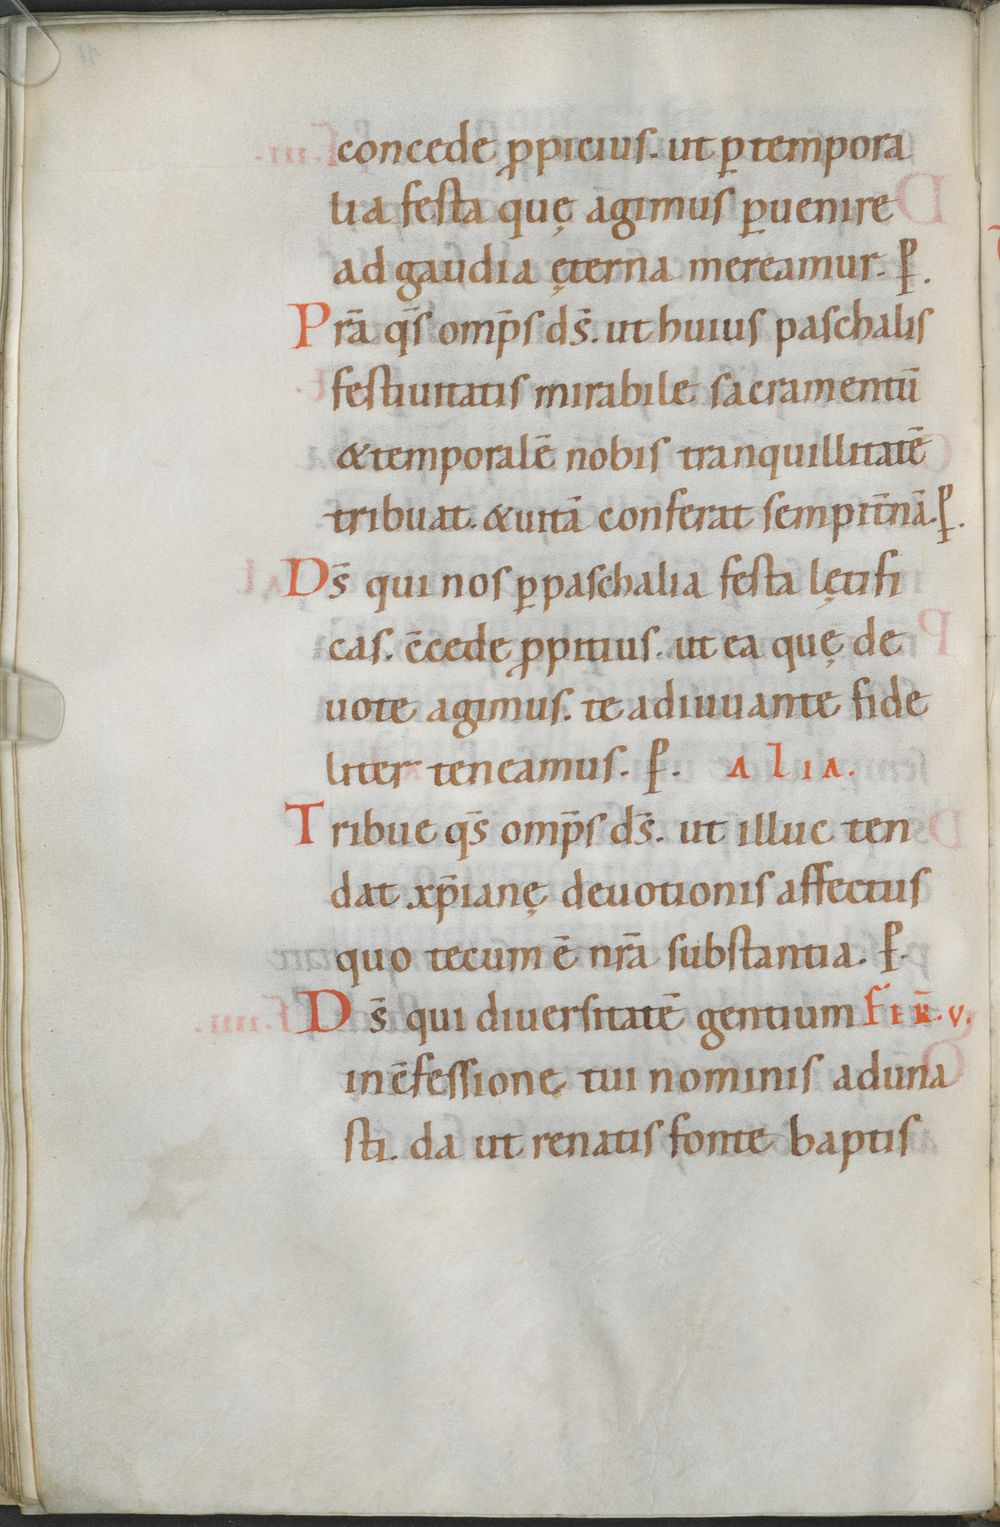 concede ꝓpicius. ut ꝑ tempora
lia festa quę agimus ꝑuenire
ad gaudia ęterna mereamur. P̲.
Prā qs̄ omp̄s ds̄. ut huius paschalis
festiuitatis mirabile sacramentū
& temporalē nobis tranquillitatē
tribuat. & uitā conferat sempit̄nā. P̲.
Ds̄ qui nos ꝑ paschalia festa lętifi
cas. c̄cede ꝓpitius. ut ea quę de
uote agimus. te adiuuante fide
liter teneamus. P̲. ALIA.
Tribue qs̄ omp̄s ds̄. ut illuc ten
dat xp̄ianę deuotionis affectus
quo tecum ē nr̄a substantia. P̲.
Ds̄ qui diuersitatē gentium FER̄. V.
in c̄fessione tui nominis aduna
sti. da ut renatis fonte baptis